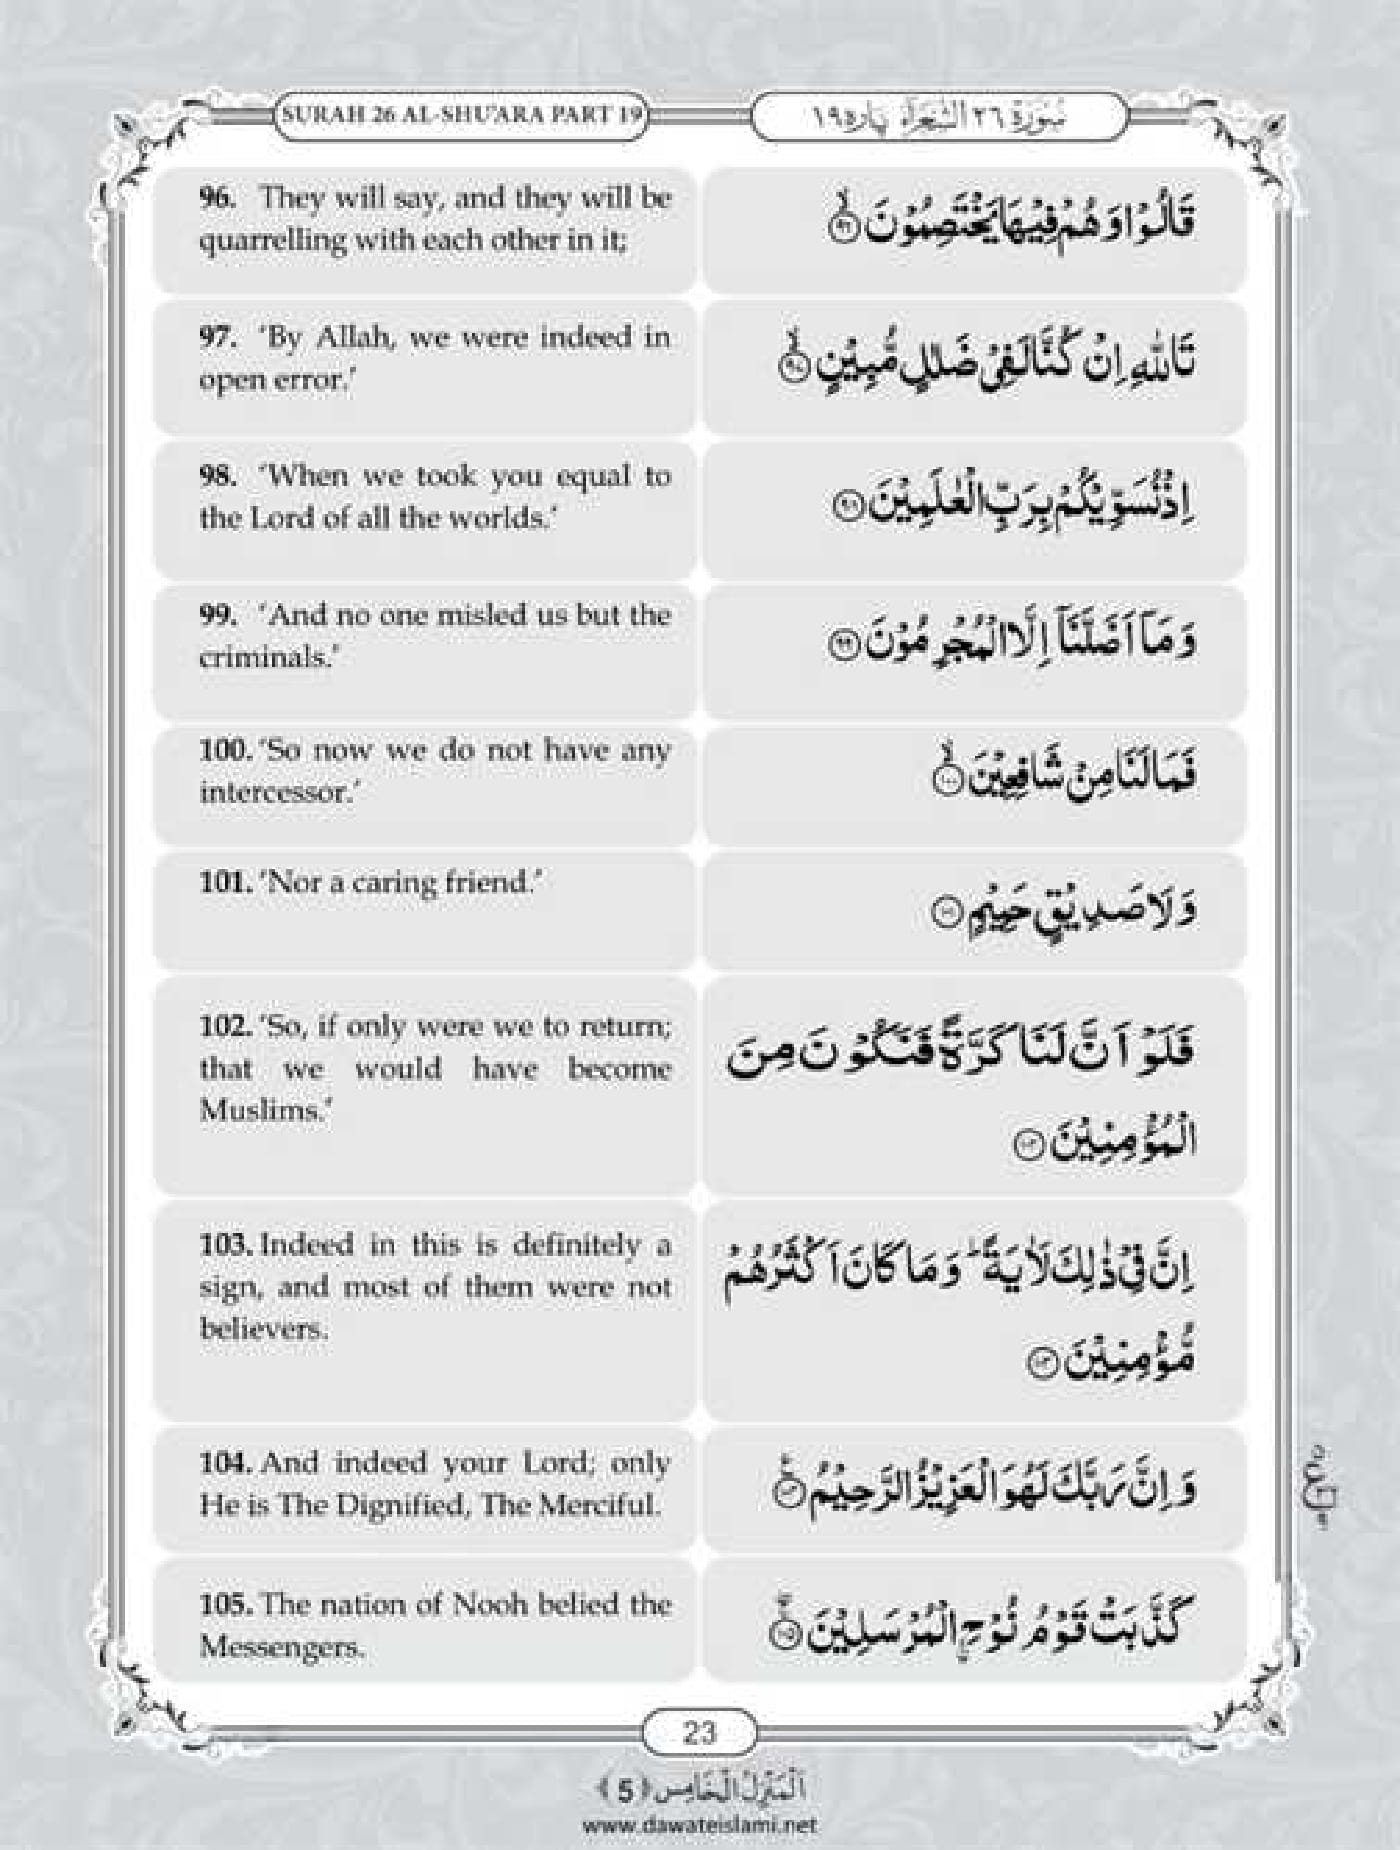 SURAH 26 AL-SHU'ARA PART 19
سُوْرَۃ ٢٦ الشُّعَرَآء پاره ١٩
96. They will say, and they will be
quarrelling with each other in it;
قَالُوْا وَهُمْ فِيْهَا يَخْتَصِمُوْنَ ۙ﴿۹۶﴾
97. ‘By Allah, we were indeed in
open error.’
تَاللّٰهِ اِنْ كُنَّا لَفِىْ ضَلٰلٍ مُّبِيْنٍ ۙ﴿۹۷﴾
98. ‘When we took you equal to
the Lord of all the worlds.’
اِذْ نُسَوِّيْكُمْ بِرَبِّ الْعٰلَمِيْنَ ﴿۹۸﴾
99. ‘And no one misled us but the
criminals.’
وَمَاۤ اَضَلَّنَاۤ اِلَّا الْمُجْرِمُوْنَ ﴿۹۹﴾
100. ‘So now we do not have any
intercessor.’
فَمَا لَنَا مِنْ شَافِعِيْنَ ۙ﴿۱۰۰﴾
101. ‘Nor a caring friend.’
وَلَا صَدِيْقٍ حَمِيْمٍ ﴿۱۰۱﴾
102. ‘So, if only were we to return;
that we would have become
Muslims.’
فَلَوْ اَنَّ لَنَا كَرَّةً فَنَكُوْنَ مِنَ
الْمُؤْمِنِيْنَ ﴿۱۰۲﴾
103. Indeed in this is definitely a
sign, and most of them were not
believers.
اِنَّ فِىْ ذٰلِكَ لَاٰيَةً ؕ وَمَا كَانَ اَكْثَرُهُمْ
مُّؤْمِنِيْنَ ﴿۱۰۳﴾
104. And indeed your Lord; only
He is The Dignified, The Merciful.
وَاِنَّ رَبَّكَ لَهُوَ الْعَزِيْزُ الرَّحِيْمُ ﴿۱۰۴﴾
105. The nation of Nooh belied the
Messengers.
كَذَّبَتْ قَوْمُ نُوْحِ ۨ الْمُرْسَلِيْنَ ﴿۱۰۵﴾
23
اَلْمَنْزِلُ الْخَامِس ﴿5﴾
www.dawateislami.net